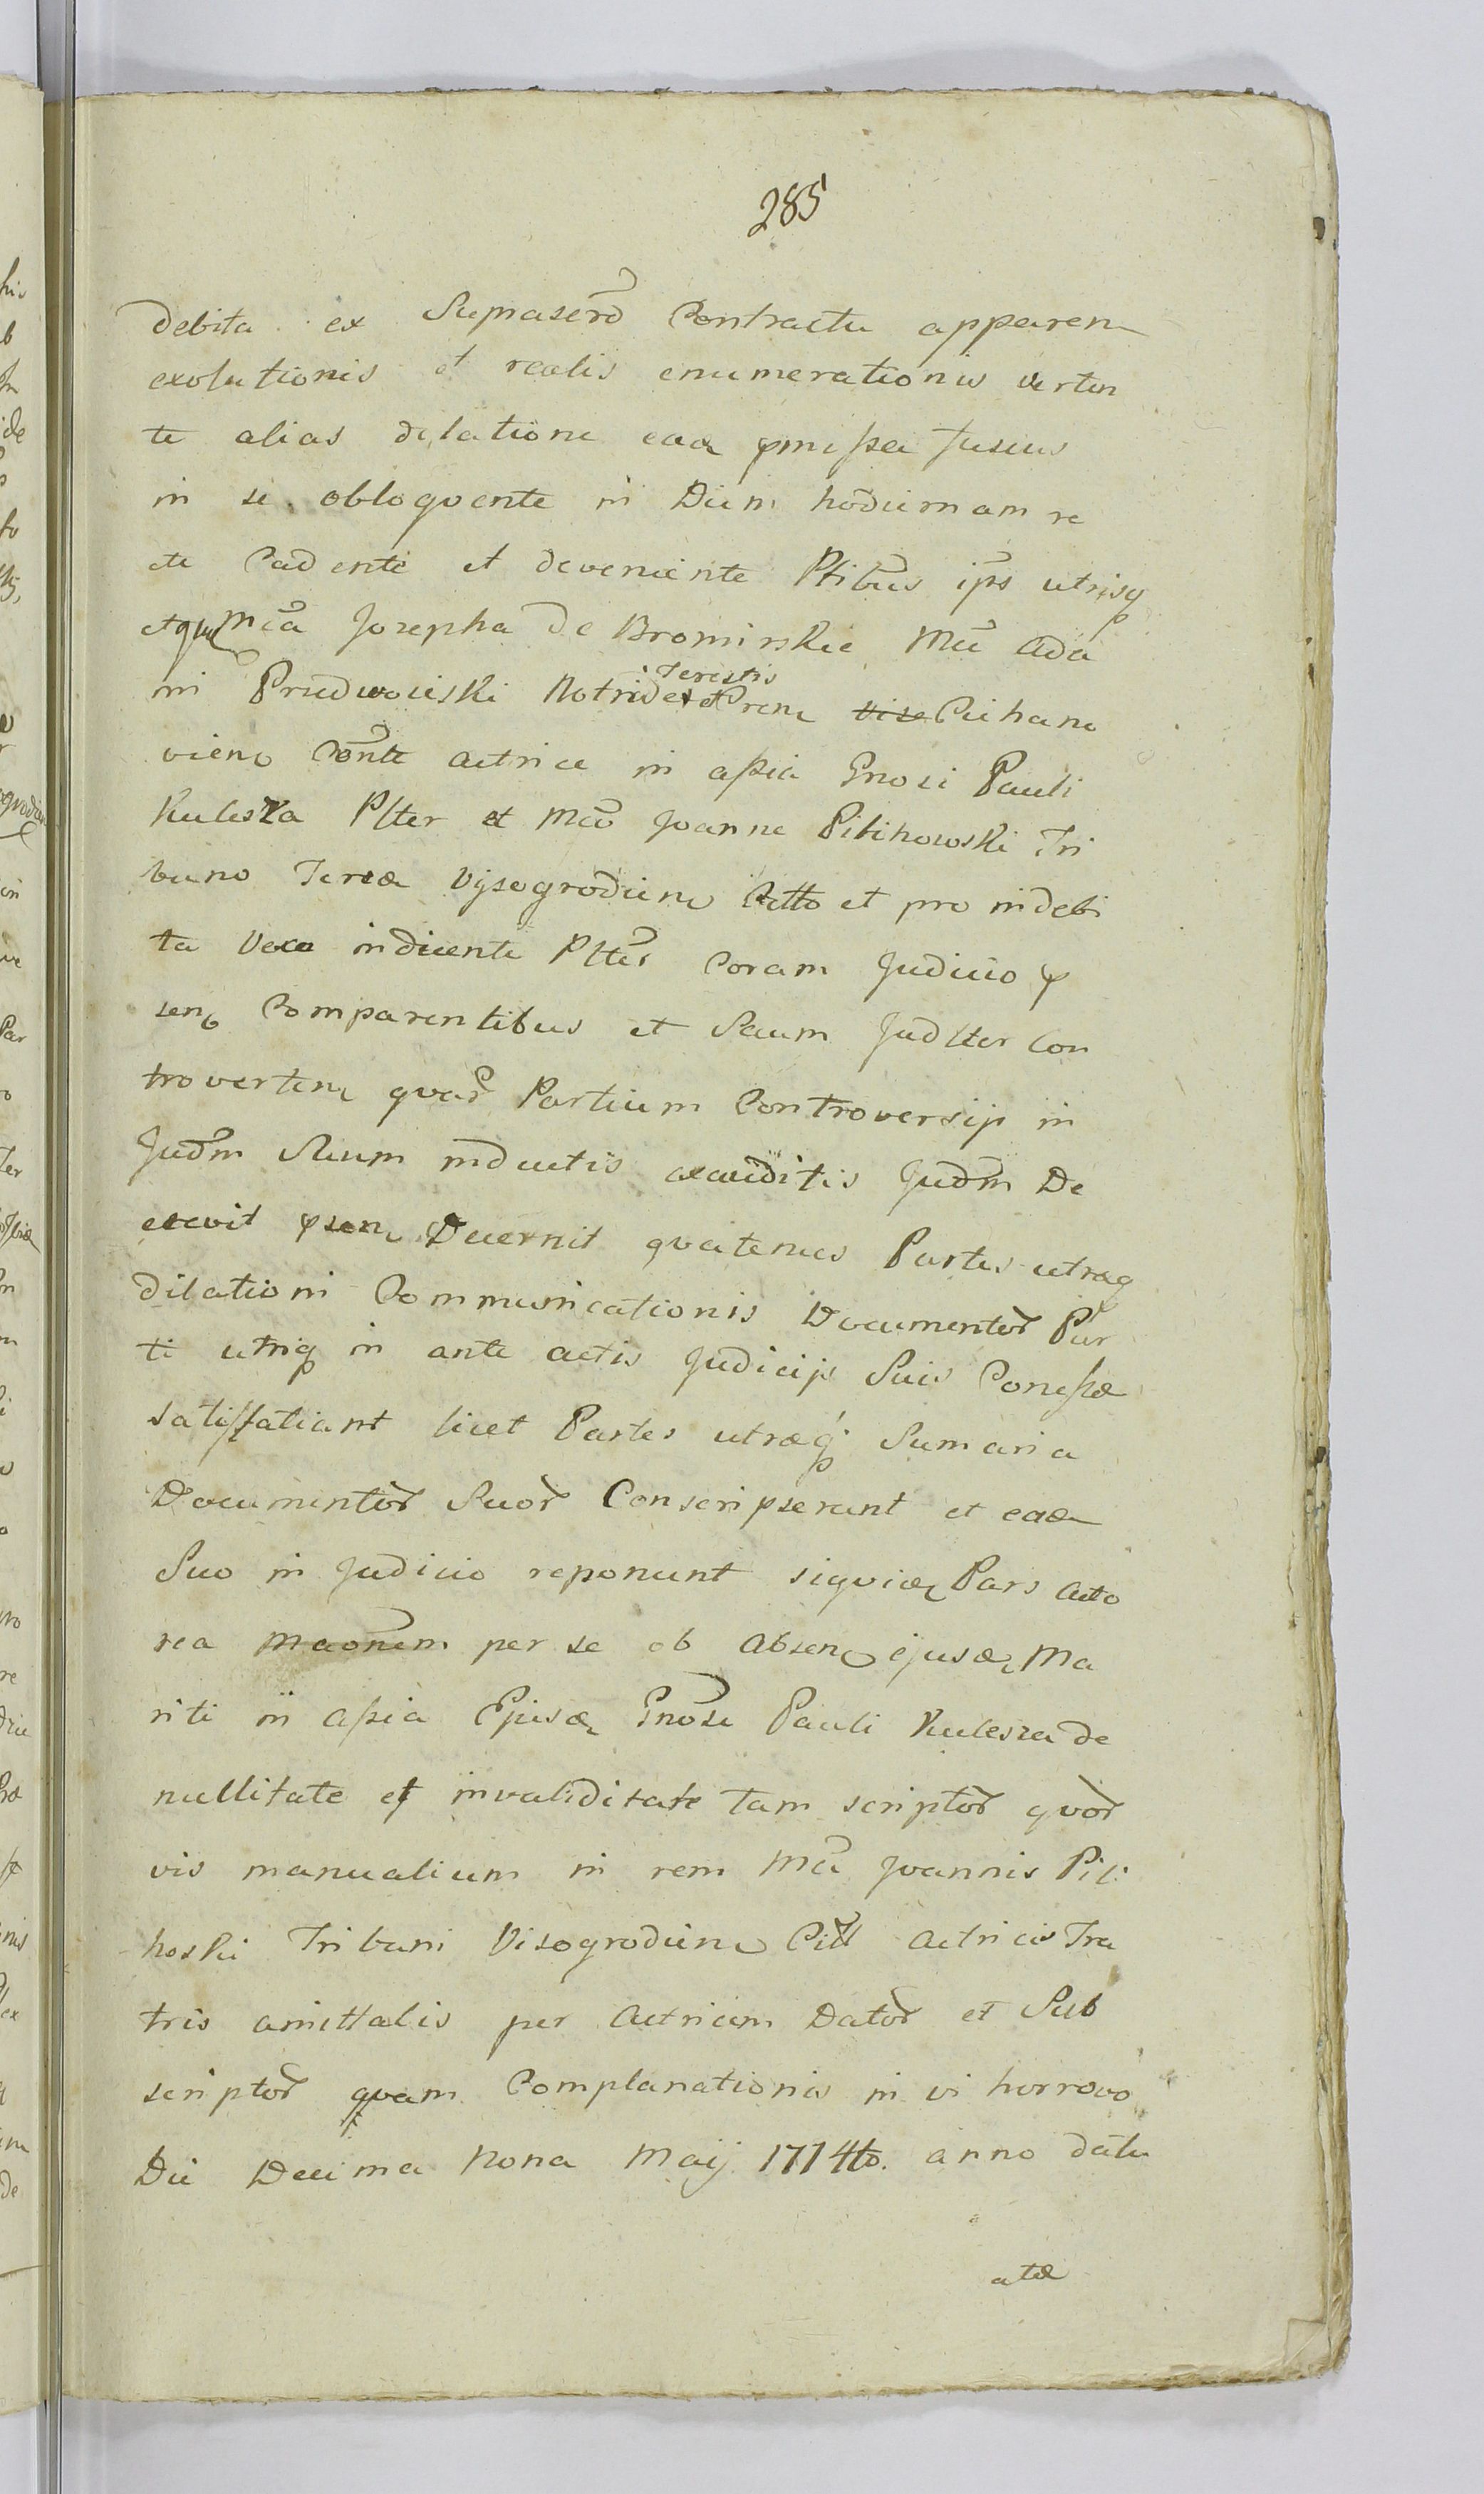 285
debita ex Suprascrõ Contractu apparen
exolutionis et realis enumerationis verten
te alias dilatione eaa pmissa fusius
in se obloquente in Diem hodiernam re
cte Cadente et deveniente Ptibus ips utrisq
Mca Josepha de Bromirskie Mci Ada
mi Przedwoieski Terestis Prena Ciechano
vien Conte Actrice in assia Gnosi Pauli
Kulesza Plter et Mco Joanne Pilihowski Tri
buno Terræ Vysogrodien Citto et pro indebi
ta Voce indicente Plter Coram Judicio p
sen Comparentibus et Secum Judlter Con
troverten quar Partium Controversijs in
Judm Suum inductis exauditis Judm De
crevit psen Decernit quatenus Partes utræq
dilationi Communicationis Documentor Par
ti utriq in ante actis Judicijs Suis Concessæ
satisfatiant licet Partes utræq Sumaria
Documentor Suor Conscripserunt et eade
Suo in Judicio reponunt siquide Pars Acto
rea per se ob Absen ejusd Ma
riti in assia Ejusd Gnosi Pauli Kulesza de
nullitate et invaliditate tam scriptor quor
vis manualium in rem Mci Joannis Pili
hoski Tribuni Visogrodien Citti Actricis Fra
tris amittalis per Actricem Dator et Sub
scriptor quam Complanationis in vi horrovo
Die Decima Nona Maij 1774to. anno datu
atæ